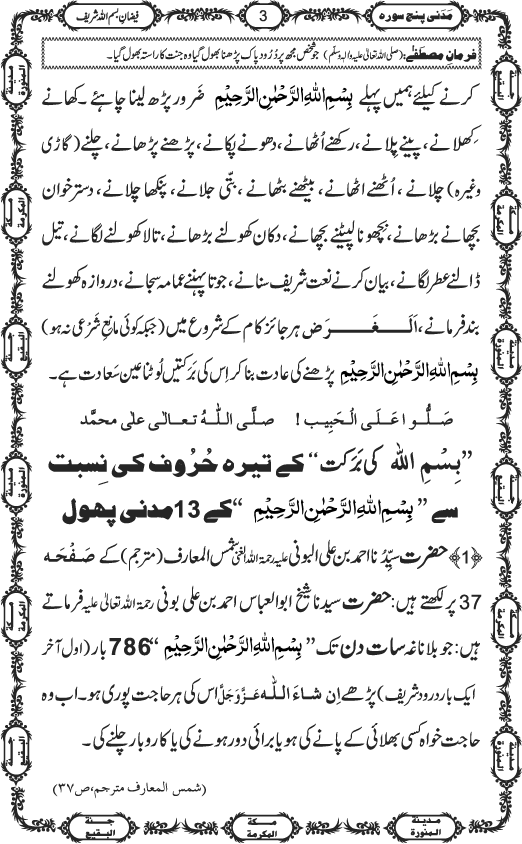 مَدَنی پنج سورہ
3
فیضانِ بسم اللہ شریف
فرمانِ مصطفٰے: (صلی اللہ تعالیٰ علیہ والہٖ وسلّم) جو شخص مجھ پر دُرُود پاک پڑھنا بھول گیا وہ جنت کا راستہ بھول گیا۔
کرنے کیلئے ہمیں پہلے بِسْمِ اللهِ الرَّحْمٰنِ الرَّحِيْمِ ضَرور پڑھ لینا چاہئے۔ کھانے
کِھلانے، پینے پلانے، رکھنے اُٹھانے، دھونے پکانے، پڑھنے پڑھانے، چلنے (گاڑی
وغیرہ) چلانے، اُٹھنے اٹھانے، بیٹھنے بٹھانے، بتّی جلانے، پنکھا چلانے، دسترخوان
بچھانے بڑھانے، بچھونا لپیٹنے بچھانے، دکان کھولنے بڑھانے، تالا کھولنے لگانے، تیل
ڈالنے عطر لگانے، بیان کرنے نعت شریف سنانے، جوتا پہننے عمامہ سجانے، دروازہ کھولنے
بند فرمانے، اَلْغَرَض ہر جائز کام کے شروع میں (جبکہ کوئی مانِعِ شَرعی نہ ہو)
بِسْمِ اللهِ الرَّحْمٰنِ الرَّحِيْمِ پڑھنے کی عادت بنا کر اِس کی بَرَکتیں لُوٹنا عین سَعادت ہے۔
صَلُّوا عَلَى الْحَبِيب! صلَّى اللّٰهُ تعالٰى على محمَّد
”بِسْمِ اللہ کی بَرَکت“ کے تیرہ حُرُوف کی نِسبت
سے ”بِسْمِ اللهِ الرَّحْمٰنِ الرَّحِيْمِ“ کے 13 مدنی پھول
﴿1﴾ حضرت سیِّدُنا احمد بن علی البونی علیہ رحمۃ اللہ الغنی شمسُ المعارف (مترجم) کے صَفْحَہ
37 پر لکھتے ہیں: حضرت سیدنا شیخ ابوالعباس احمد بن علی بونی رحمۃ اللہ تعالیٰ علیہ فرماتے
ہیں: جو بلا ناغہ سات دن تک ”بِسْمِ اللهِ الرَّحْمٰنِ الرَّحِيْمِ“ 786 بار (اول آخر
ایک بار درود شریف) پڑھے اِن شاءَ اللّٰہ عَزَّوَجَلَّ اس کی ہر حاجت پوری ہو۔ اب وہ
حاجت خواہ کسی بھلائی کے پانے کی ہو یا برائی دور ہونے کی یا کاروبار چلنے کی۔
(شمس المعارف مترجم، ص ۳۷)
مدینۃ المنورۃ
مکۃ المکرمۃ
جنۃ البقیع